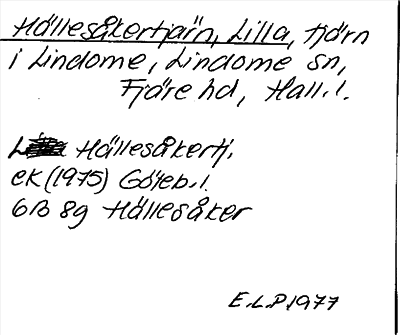 Hällesåkertjärn, Lilla, tjärn
i Lindome, Lindome sn,
Fjäre hd, Hall. l.
Hällesåkertj.
ek (1975) Göteb. l.
6B 8g Hällesåker
E.L.P. 1977